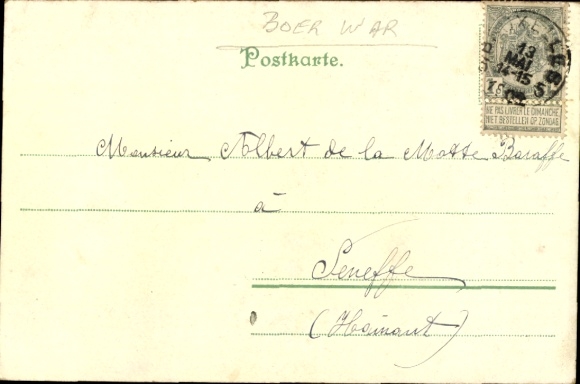 BOER WAR
Postkarte.
13
MAI
14-15
NE PAS LIVRER LE DIMANCHE
NIET BESTELLEN OP ZONDAG
Monsieur Albert de la Motte Baraffe
à
Seneffe
(Hainaut)